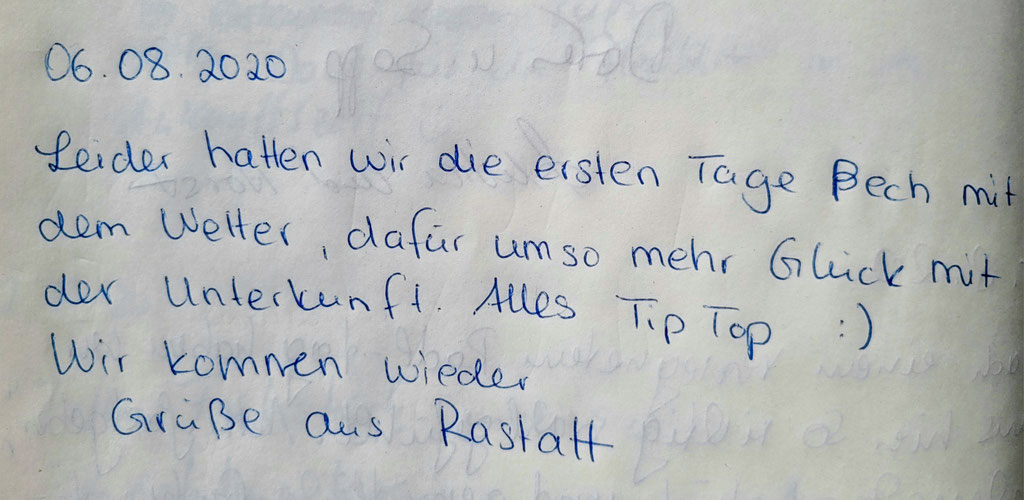 06.08.2020
Leider hatten wir die ersten Tage Pech mit
dem Wetter, dafür umso mehr Glück mit
der Unterkunft. Alles Tip Top :)
Wir kommen wieder
Grüße aus Rastatt